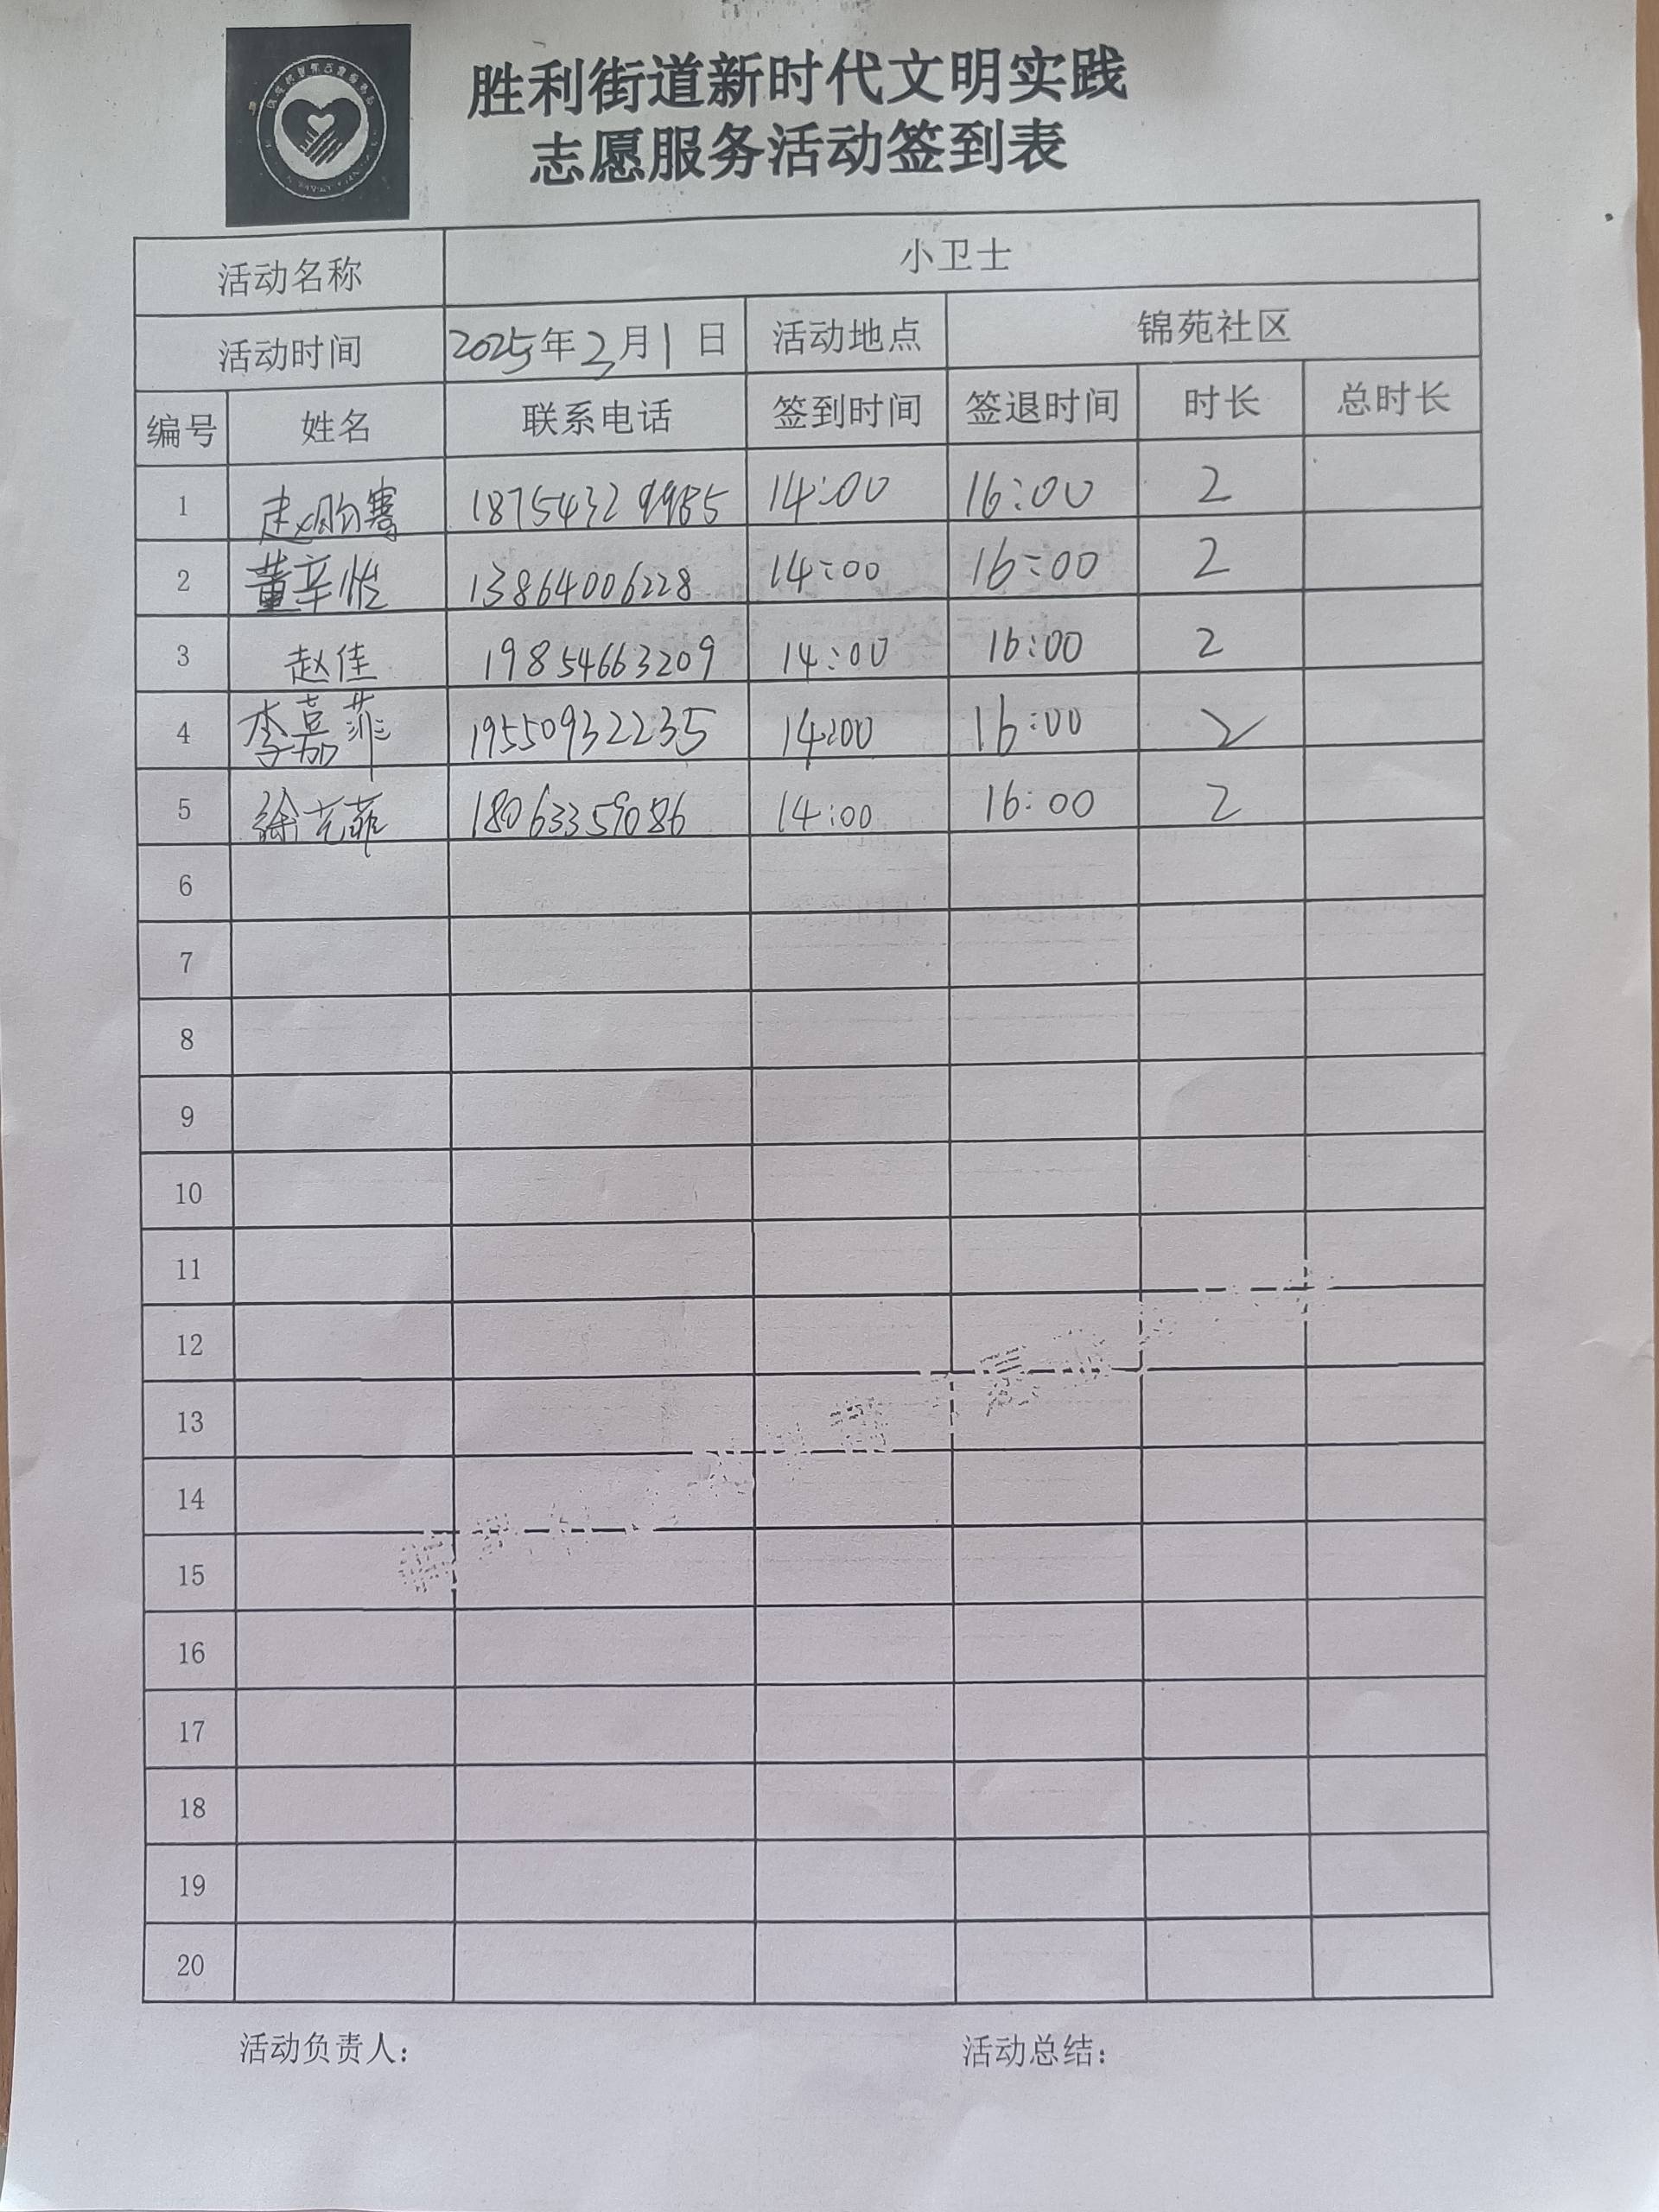 胜利街道新时代文明实践
志愿服务活动签到表
活动名称 小卫士
活动时间 2025年2月1日 活动地点 锦苑社区
编号 姓名 联系电话 签到时间 签退时间 时长 总时长
1 赵 18754329985 14:00 16:00 2
2 董辛怡 13864006228 14:00 16:00 2
3 赵佳 19854663209 14:00 16:00 2
4 李嘉菲 19550932235 14:00 16:00 2
5 徐艺菲 18063359086 14:00 16:00 2
6
7
8
9
10
11
12
13
14
15
16
17
18
19
20
活动负责人: 活动总结: